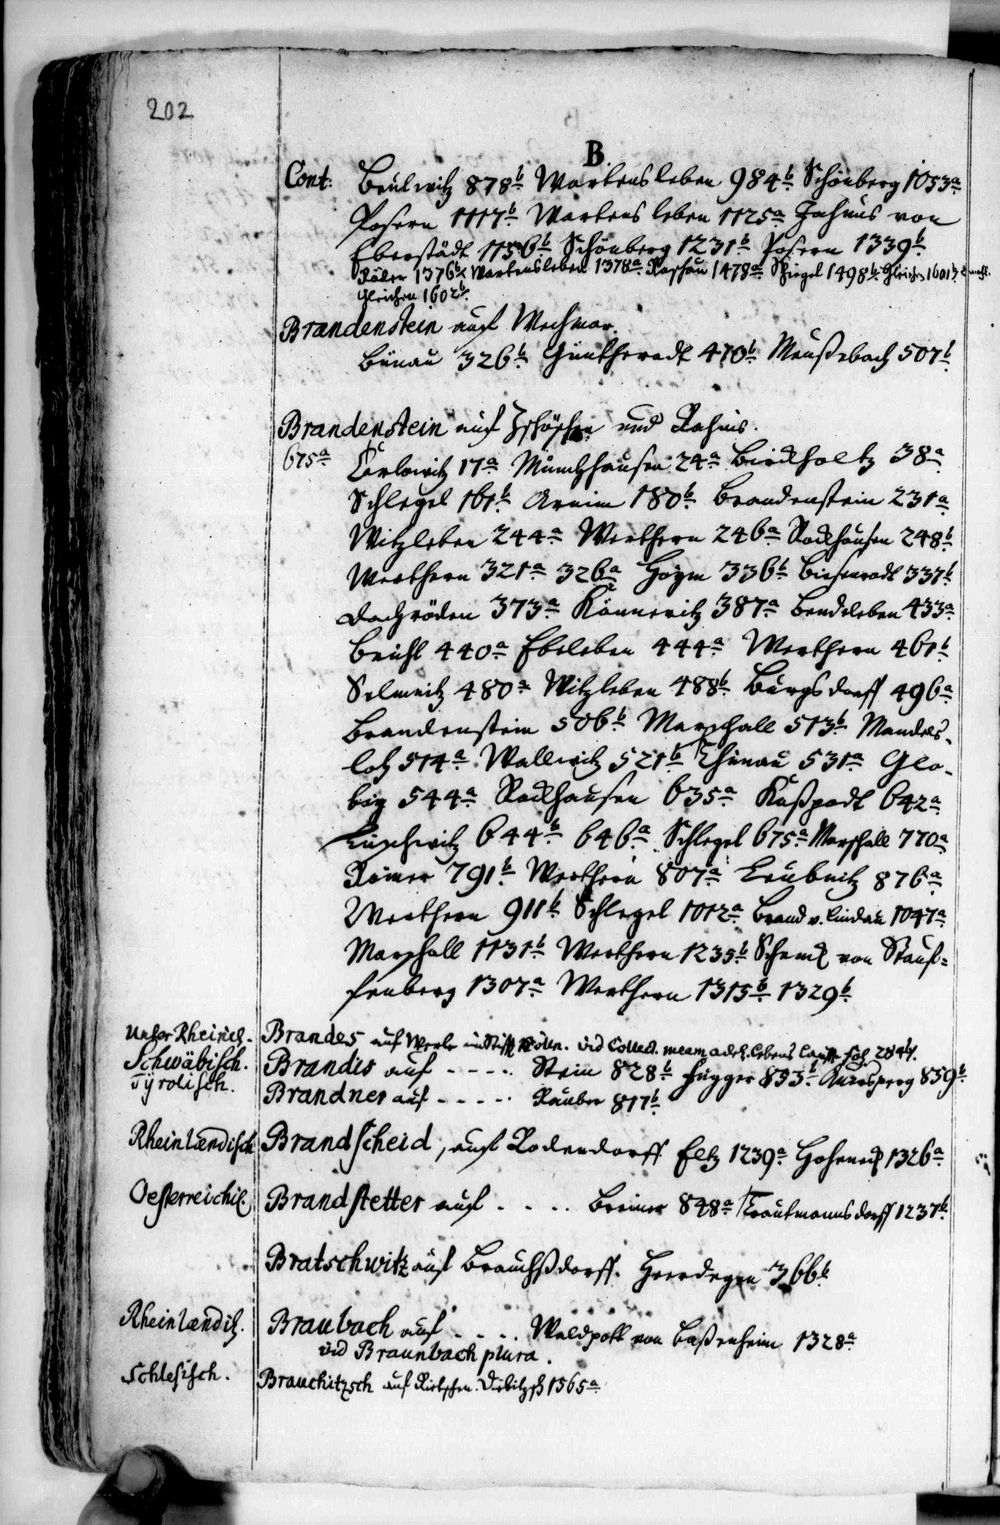 202
B.
Cont: Beulwitz 878b Wartensleben 984b Schönberg 1053a
Posern 1117b Wartensleben 1125a Jahnus von
Eberstädt 1156b Schönberg 1231b Posern 1339b
Röder 1376b Wartensleben 1378a 1478a Spiegel 1498b Gleichen 1601b
Gleichen 1602b
Brandenstein auf Wechmar.
Bünau 326b Günterodt 470b Meusebach 507b
Brandenstein auf und Rahnis.
675a Carlowitz 17a Münchhausen 24a Birckholtz 38a
Schlegel 161b Arnim 180b Brandenstein 231a
Witzleben 244a Werthern 246a Rockhausen 248b
Werthern 321a 326a Hoym 336b Biesenrodt 337b
Dachröden 373a Könneritz 387a Bendeleben 433a
Brühl 440a Ebeleben 444a Werthern 461b
Selmnitz 480a Witzleben 488b Burgsdorff 496a
Brandenstein 506b Marschall 513b Mandels-
loh 514a Wallwitz 521b Thünau 531a Glo-
big 544a Rockhausen 635a Kußpodt 642a
644b 646a Schlegel 675a Marschall 770a
Römer 791b Werthern 807a Leubnitz 876a
Werthern 911b Schlegel 1012a Brand v. Lindau 1047a
Marschall 1131b Werthern 1235b Schenck von Stauf-
fenberg 1307a Werthern 1315b 1329b
Unter Rheinisch. Brandes auf Werle im Stifft Cölln. vid Collect. meam adel. Lebens Läuffe fol. 284b
Schwäbisch. Brandis auf - - - -. Stein 828b Fugger 853b Auersperg 859b
Tyrolisch. Brandner auf - - - - - Räuber 817b
Rheinländisch Brandscheid, auf Rodendorff Eltz 1239a Hoheneck 1326a
Oesterreichis. Brandstetter auf . . . . Breiner 848a Trautmannsdorff 1237b
Bratschwitz auf Brauchßdorff. Heerdegen 366b
Rheinländis. Braubach auf . . . . Waldpott von Baßenheim 1328a
vid Braunbach plura.
Schlesisch. Brauchitzsch auf 1565a